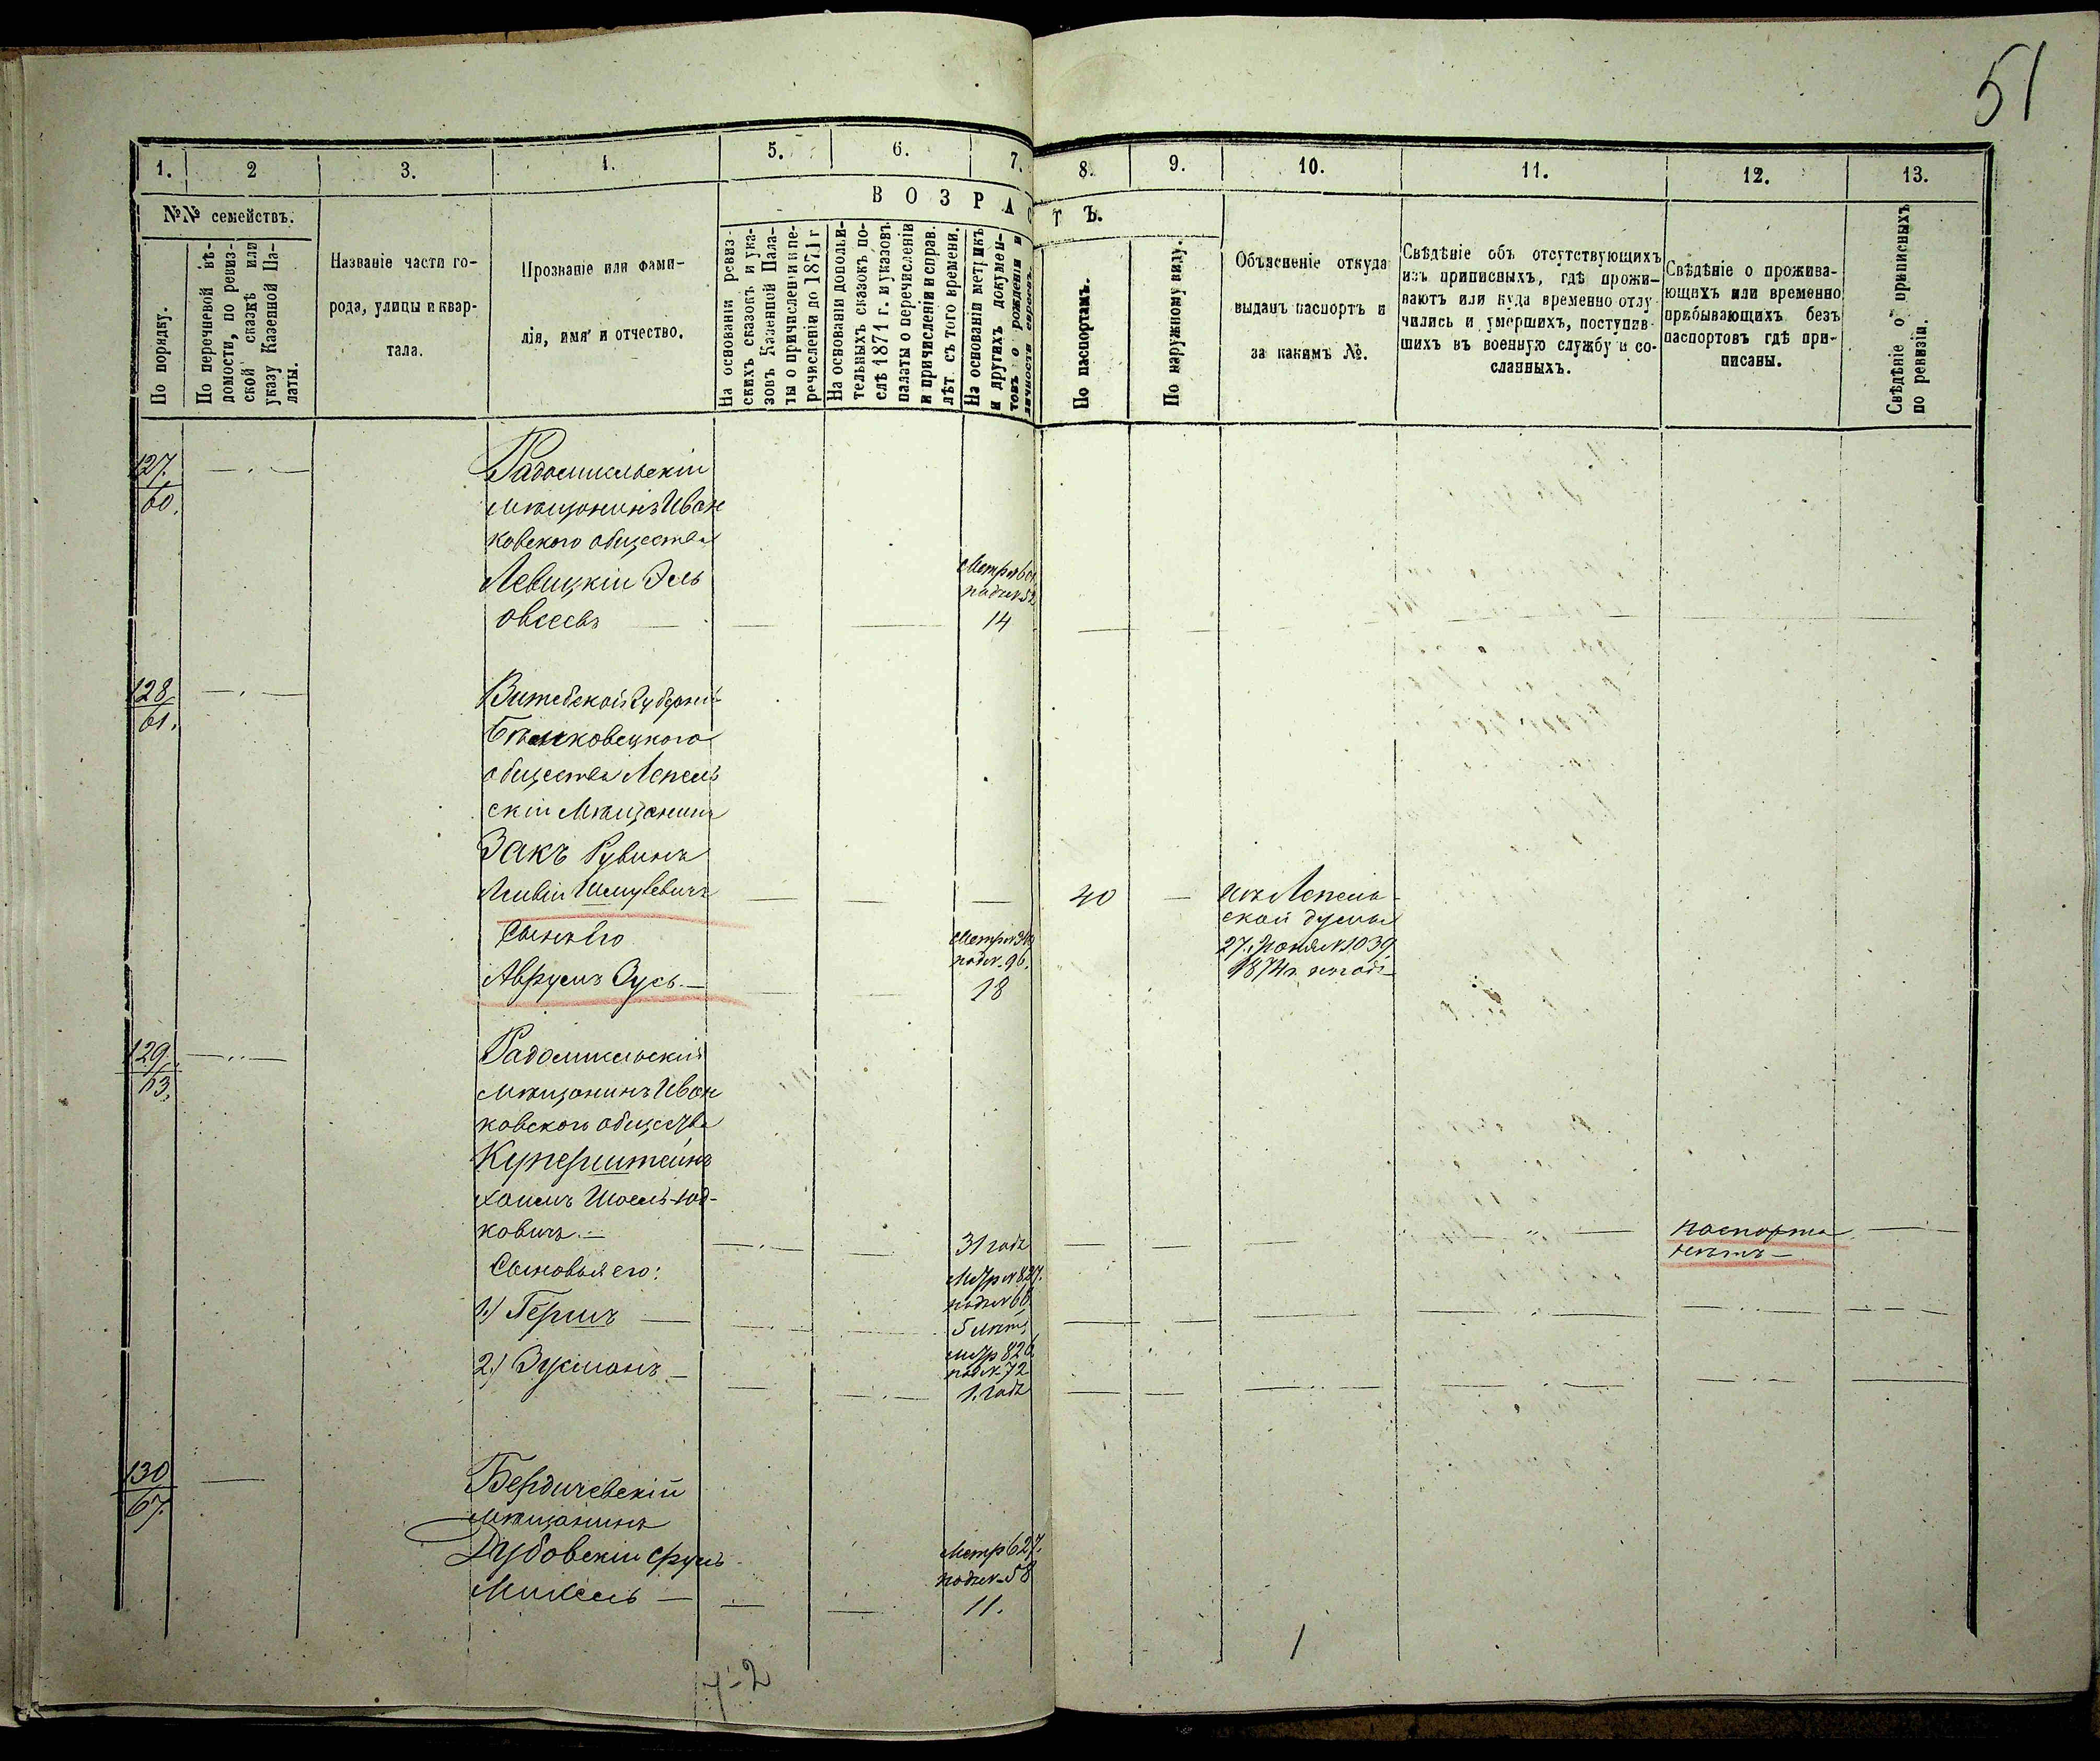 51
1. 2 3. 4. 5. 6. 7. 8. 9. 10. 11. 12. 13.
№№ семействъ.
По порядку.
По перечневой вѣ-
домости, по ревиз-
ской сказкѣ или
указу Казенной Па-
латы.
Названіе части го-
рода, улицы и квар-
тала.
Прозваніе или фами-
лія, имя и отчество.
ВОЗРАСТЪ.
На основаніи ревиз-
скихъ сказокъ и ука-
зовъ Казенной Пала-
ты о причисленіи и пе-
речисленіи до 1871 г.
На основаніи дополни-
тельныхъ сказокъ по-
слѣ 1871 г. и указовъ
палаты о перечисленіи
и причисленіи и справ.
лѣт. съ того времени.
На основаніи метрикъ
и другихъ докумен-
товъ о рожденіи и
личности евреевъ.
По паспортамъ.
По наружному виду.
Объясненіе откуда
выданъ паспортъ и
за какимъ №.
Свѣдѣніе объ отсутствующихъ
изъ приписныхъ, гдѣ прожи-
ваютъ или куда временно отлу-
чились и умершихъ, поступив-
шихъ въ военную службу и со-
сланныхъ.
Свѣдѣніе о прожива-
ющихъ или временно
прибывающихъ безъ
паспортовъ гдѣ при-
писаны.
Свѣдѣніе о приписныхъ
по ревизіи.
127.
60.
Радомисльскій
мѣщанинъ Иван
ковского общества
Левицкій Эль
Овсеевъ
Метр №601
под №52
14
128
61.
Витебской Губерніи
Бѣшковецкого
общества Лепель
скій Мѣщанинъ
Закъ Рувинъ
Лейвій Шмулевичъ
40
изъ Лепель-
ской думы
27 Іюня №1039
1874 г. на годъ
Сынъ Его
под №. 96.
Аврумъ Зусь.
18
129.
63.
Радомисльскій
мѣщанинъ Иван
ковского общества
Куперштейнъ
Хаимъ Шоель-Юд-
ковичъ.
31 годъ
паспорта
нѣтъ
Сыновья его:
Метр №827.
под №66
1.) Гершъ
5 лѣтъ
Метр 826
под №72
2.) Зусманъ
1. годъ
130
67.
Бердичевскій
мѣщанинъ
Дубовскій Сруль
Микель
Метр 627.
под №58
11.
7-2
1